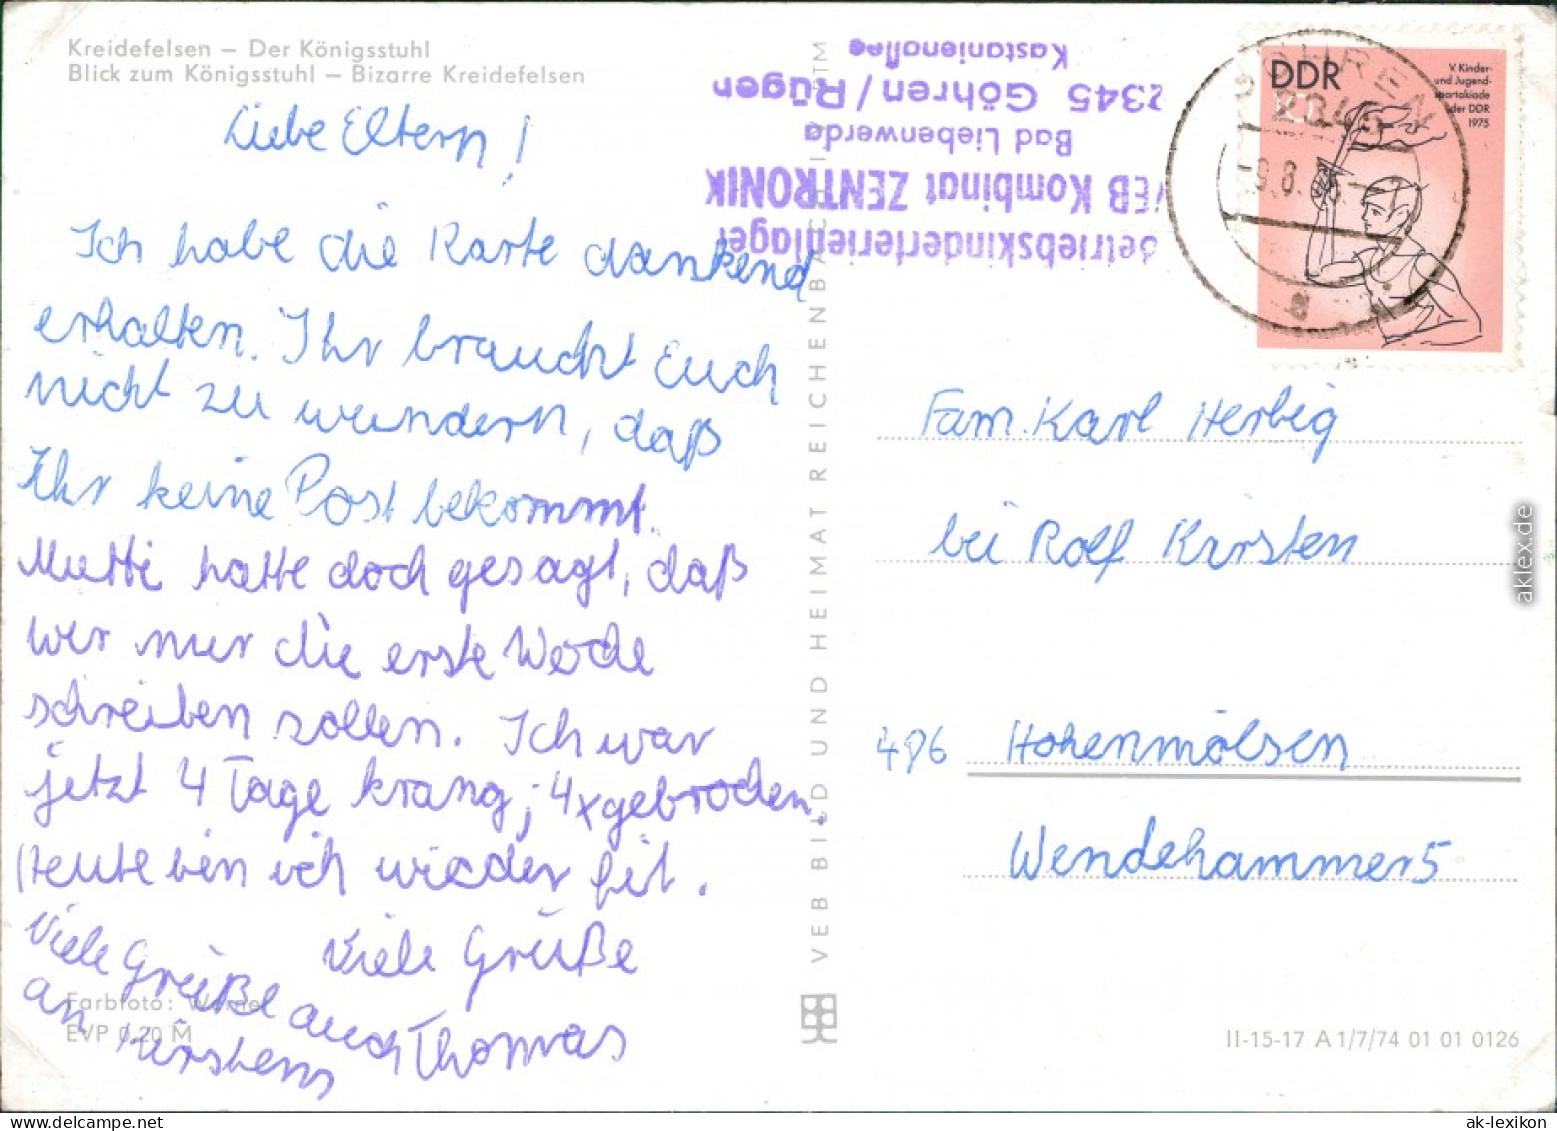 Kreidefelsen – Der Königsstuhl
Blick zum Königsstuhl – Bizarre Kreidefelsen
Liebe Eltern!
Ich habe die Karte dankend
erhalten. Ihr braucht Euch
nicht zu wundern, daß
Ihr keine Post bekommt.
Mutti hatte doch gesagt, daß
wir nur die erste Woche
schreiben sollen. Ich war
jetzt 4 Tage krang; 4x gebrochen.
Heute bin ich wieder fit.
Viele Grüße
Thomas
Viele Grüße auch
an Kirstens
Farbfoto:
EVP 0,20 M
VEB BILD UND HEIMAT REICHENBACH
Betriebskinderferienlager
VEB Kombinat ZENTRONIK
Bad Liebenwerda
2345 Göhren/Rügen
Kastanienallee
DDR
20
V. Kinder-
und Jugend-
spartakiade
der DDR
1975
GÖHREN
2345
-9.8.
a
Fam. Karl Herbig
bei Rolf Kirsten
486 Hohenmölsen
Wendehammer 5
II-15-17 A 1/7/74 01 01 0126
aklex.de
ak-lexikon